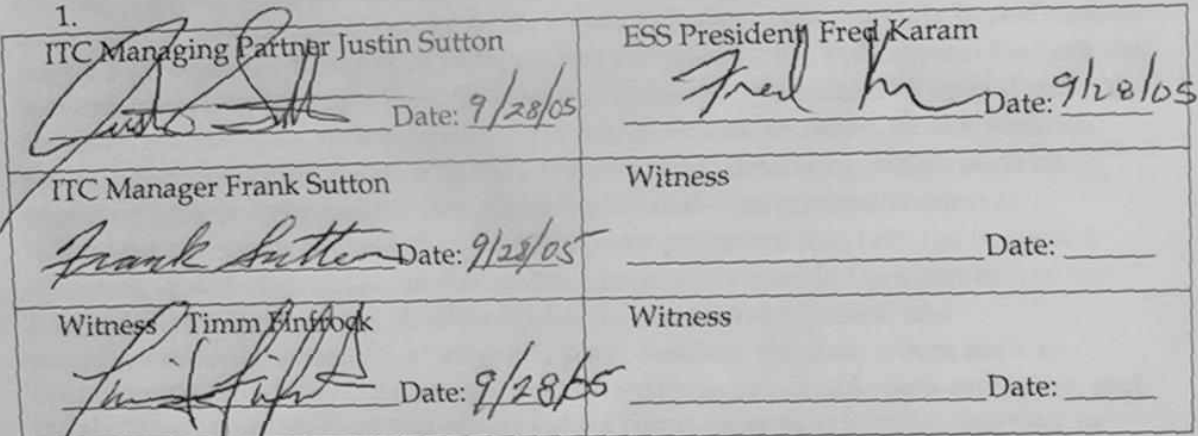 1.
ITC Managing Partner Justin Sutton
Justin Sutton Date: 9/28/05
ESS President Fred Karam
Fred K Date: 9/28/05
ITC Manager Frank Sutton
Frank Sutton Date: 9/28/05
Witness
Date:
Witness Timm
Date: 9/28/05
Witness
Date: